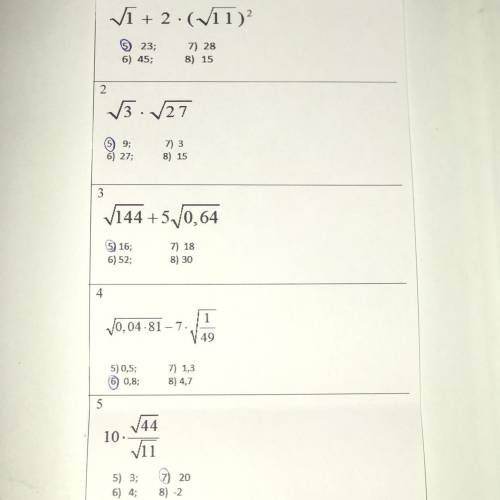 √1 + 2 · (√11)²
5) 23; 7) 28
6) 45; 8) 15
2
√3 · √27
5) 9; 7) 3
6) 27; 8) 15
3
√144 + 5√0,64
5) 16; 7) 18
6) 52; 8) 30
4
√0,04·81 − 7·√(1/49)
5) 0,5; 7) 1,3
6) 0,8; 8) 4,7
5
10·√44/√11
5) 3; 7) 20
6) 4; 8) -2